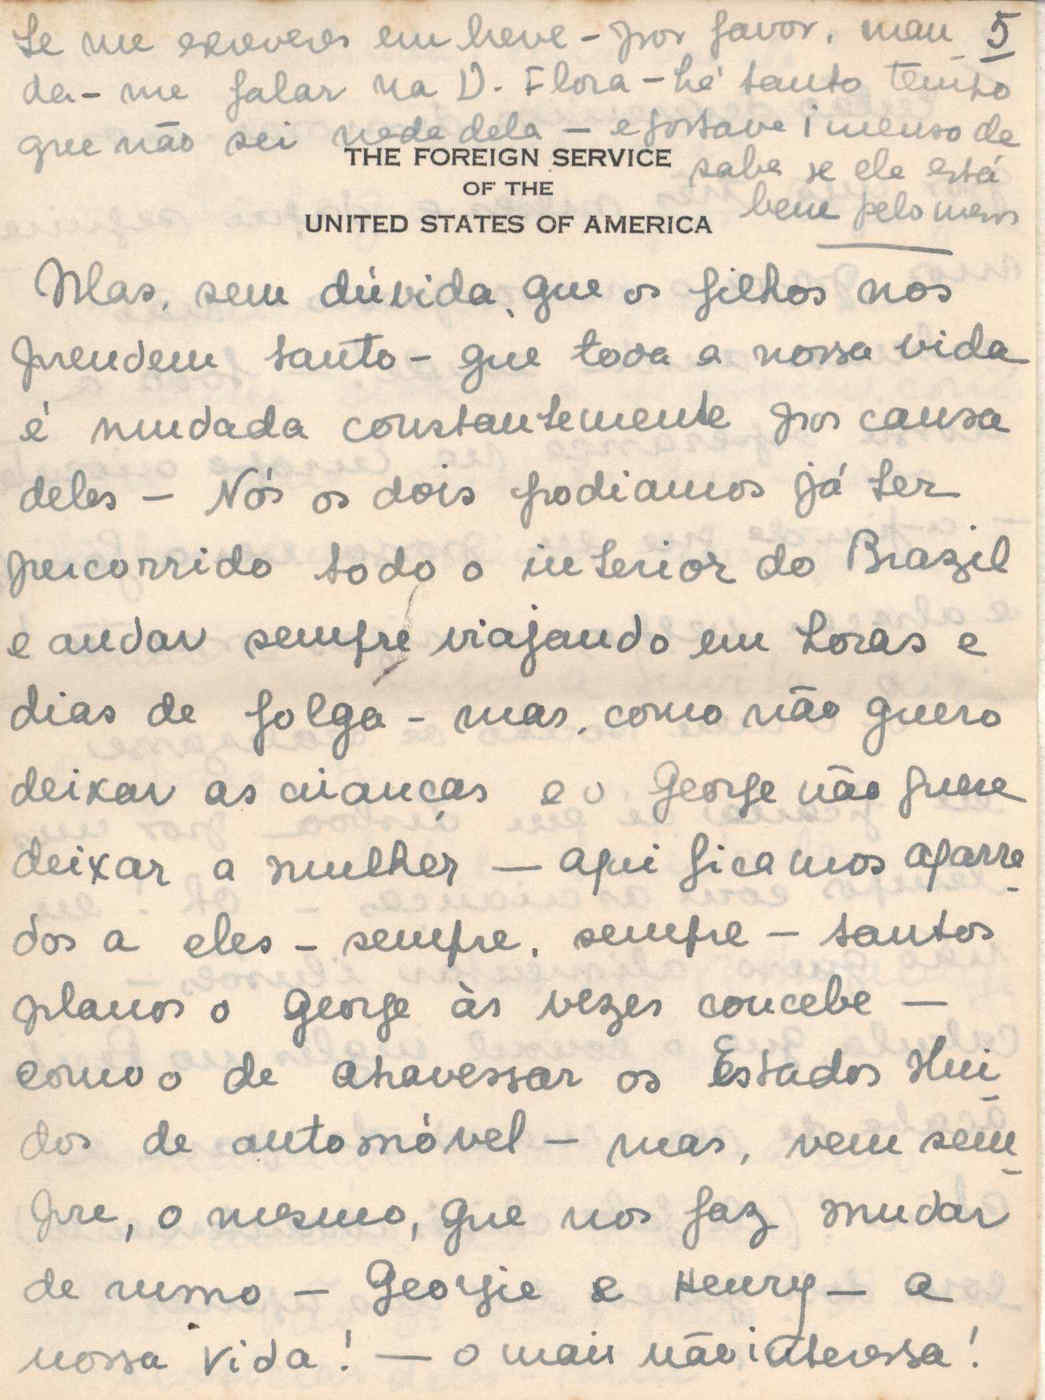 Se me escreveres em breve - por favor, man_ 5
da-me falar na D. Flora - há tanto tempo
que não sei nada dela - e gostava imenso de
sabe se ela está
bem pelo menos
THE FOREIGN SERVICE
OF THE
UNITED STATES OF AMERICA
Mas, sem dúvida, que os filhos nos
prendem tanto - que toda a nossa vida
é mudada constantemente por causa
deles - Nós os dois podiamos já ter
percorrido todo o interior do Brazil
e andar sempre viajando em horas e
dias de folga - mas, como não quero
deixar as crianças e o George não quere
deixar a mulher - aqui ficamos agarra_
dos a eles - sempre, sempre - tantos
planos o George às vezes concebe -
como o de atravessar os Estados Uni_
dos de automóvel - mas, vem sem_
pre, o mesmo, que nos faz mudar
de rumo - Georgie e Henry - a
nossa vida! - o mais não interessa!